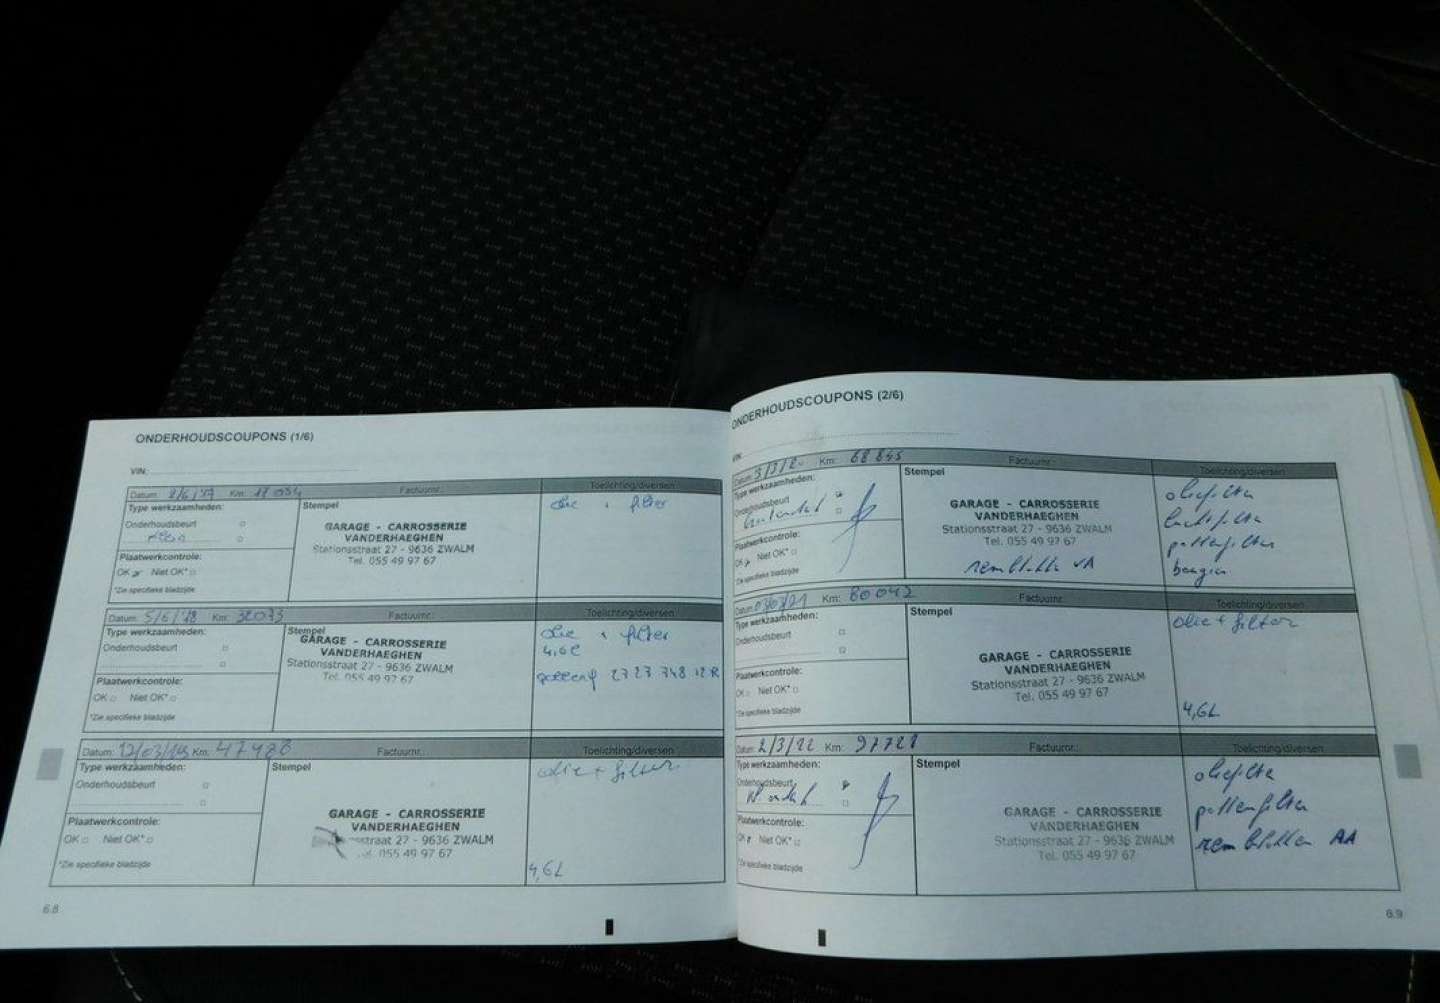 ONDERHOUDSCOUPONS (1/6)
VIN:
Datum: 2/6/'17 Km: 17 034 Factuurnr.: Toelichting/diversen
Type werkzaamheden:
Onderhoudsbeurt
Stempel
GARAGE - CARROSSERIE
VANDERHAEGHEN
Stationsstraat 27 - 9636 ZWALM
Tel. 055 49 97 67
olie + filter
Plaatwerkcontrole:
OK Niet OK*
*Zie specifieke bladzijde
Datum: 5/6/'18 Km: 32073 Factuurnr.: Toelichting/diversen
Type werkzaamheden:
Onderhoudsbeurt
Stempel
GARAGE - CARROSSERIE
VANDERHAEGHEN
Stationsstraat 27 - 9636 ZWALM
Tel. 055 49 97 67
olie + filter
4,6L
2723 748 12R
Plaatwerkcontrole:
OK Niet OK*
*Zie specifieke bladzijde
Datum: 12/03/19 Km: 47486 Factuurnr.: Toelichting/diversen
Type werkzaamheden:
Onderhoudsbeurt
Stempel
GARAGE - CARROSSERIE
VANDERHAEGHEN
straat 27 - 9636 ZWALM
055 49 97 67
olie + filter
4,6L
Plaatwerkcontrole:
OK Niet OK*
*Zie specifieke bladzijde
6.8
ONDERHOUDSCOUPONS (2/6)
VIN:
Datum: 3/3/20 Km: 68845 Factuurnr.: Toelichting/diversen
Type werkzaamheden:
Onderhoudsbeurt
Stempel
GARAGE - CARROSSERIE
VANDERHAEGHEN
Stationsstraat 27 - 9636 ZWALM
Tel. 055 49 97 67
remblokken VA
oliefilter
luchtfilter
pollenfilter
bougies
Plaatwerkcontrole:
OK Niet OK*
*Zie specifieke bladzijde
Datum: 03/03/21 Km: 80042 Factuurnr.: Toelichting/diversen
Type werkzaamheden:
Onderhoudsbeurt
Stempel
GARAGE - CARROSSERIE
VANDERHAEGHEN
Stationsstraat 27 - 9636 ZWALM
Tel. 055 49 97 67
olie + filter
4,6L
Plaatwerkcontrole:
OK Niet OK*
*Zie specifieke bladzijde
Datum: 2/3/22 Km: 97728 Factuurnr.: Toelichting/diversen
Type werkzaamheden:
Onderhoudsbeurt
Stempel
GARAGE - CARROSSERIE
VANDERHAEGHEN
Stationsstraat 27 - 9636 ZWALM
Tel. 055 49 97 67
oliefilter
pollenfilter
remblokken AA
Plaatwerkcontrole:
OK Niet OK*
*Zie specifieke bladzijde
6.9